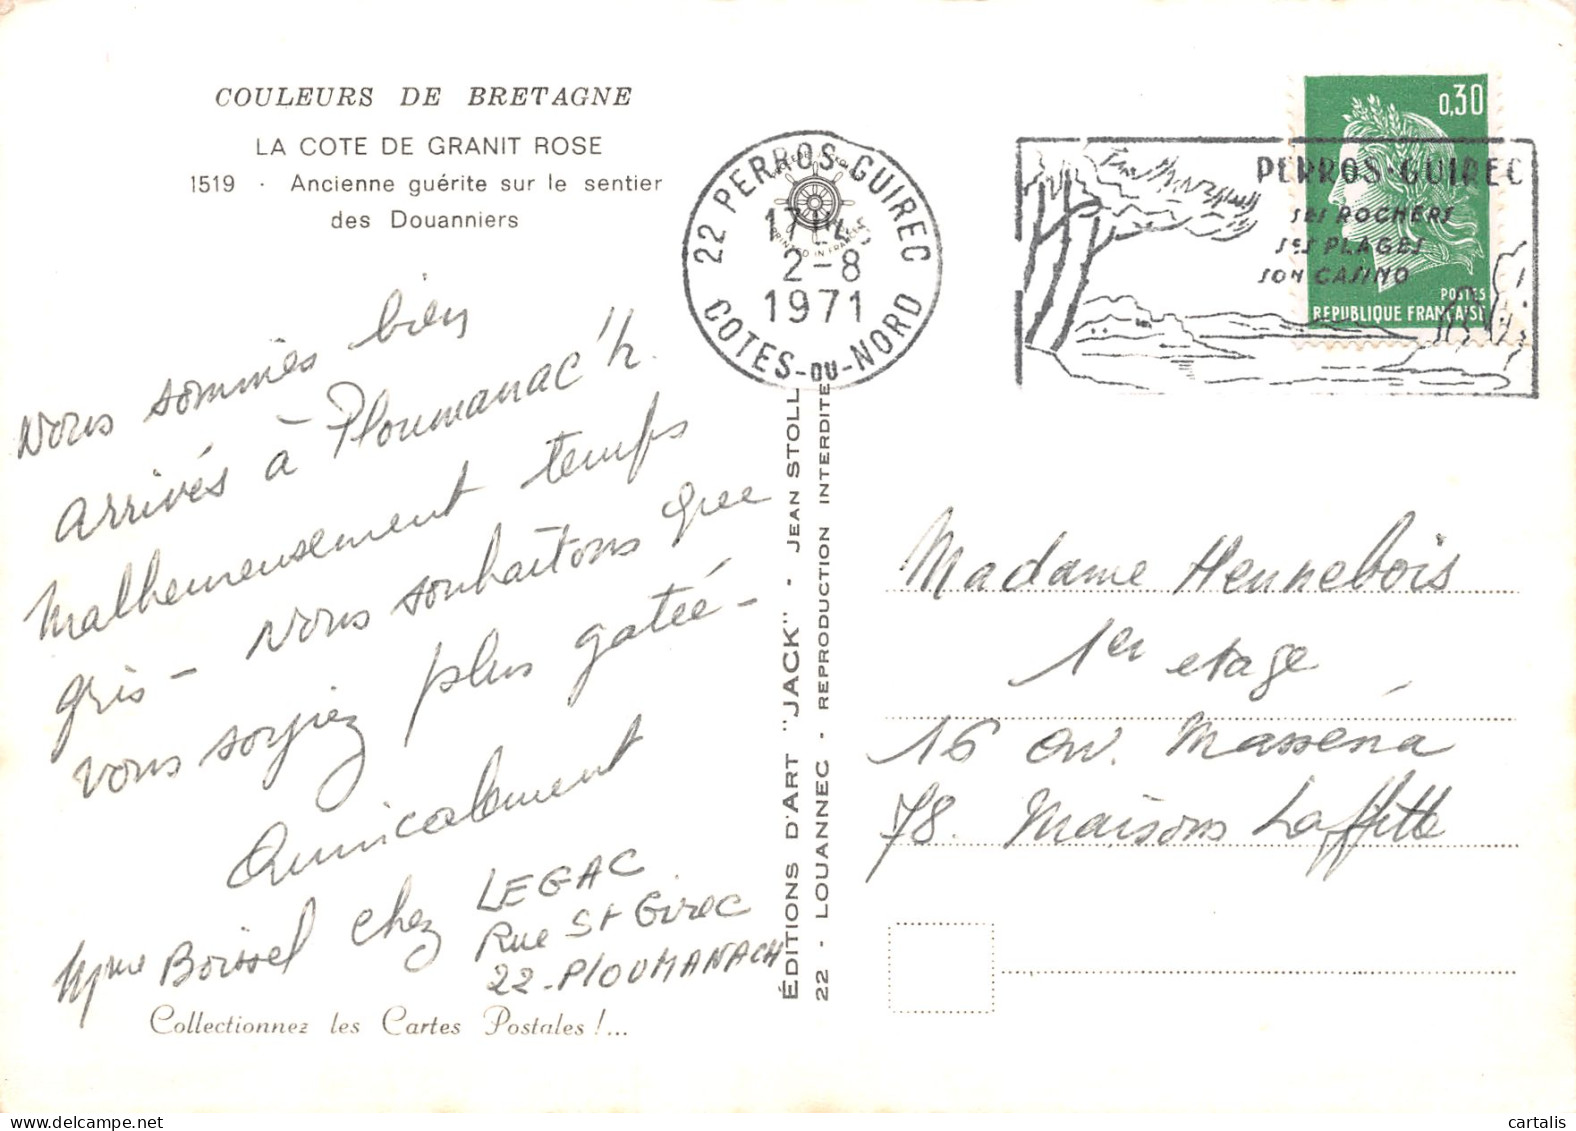 COULEURS DE BRETAGNE
LA COTE DE GRANIT ROSE
1519 · Ancienne guérite sur le sentier
des Douanniers
Nous sommes bien
arrivés à Ploumanac'h.
Malheureusement temps
gris - Nous souhaitons que
vous soyiez plus gatée -
Amicalement
Mme Boissel chez LEGAC
Rue St Girec
22-PlOUMANACH
Collectionnez les Cartes Postales !...
22 PERROS-GUIREC
17H45
2-8
1971
COTES-DU-NORD
PRINTED IN FRANCE
ÉDITIONS D'ART "JACK" - JEAN STOLL
22 - LOUANNEC - REPRODUCTION INTERDITE
PERROS-GUIREC
SES ROCHERS
SES PLAGES
SON CASINO
0,30
POSTES
REPUBLIQUE FRANÇAISE
Madame Hennebois
1er etage
16 av. Masséna
78. Maisons Laffitte
cartalis